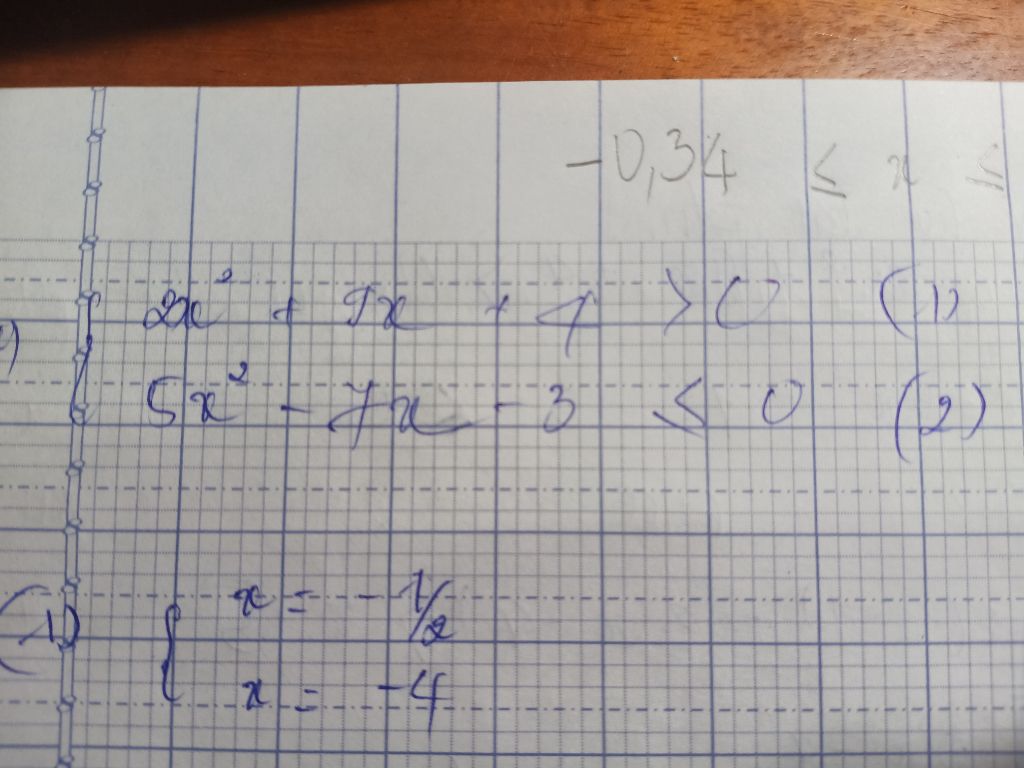 -0,34 ≤ x ≤
2x² + 9x + 4 > 0 (1)
5x² - 7x - 3 ≤ 0 (2)
(1) { x = - 1/2
x = -4